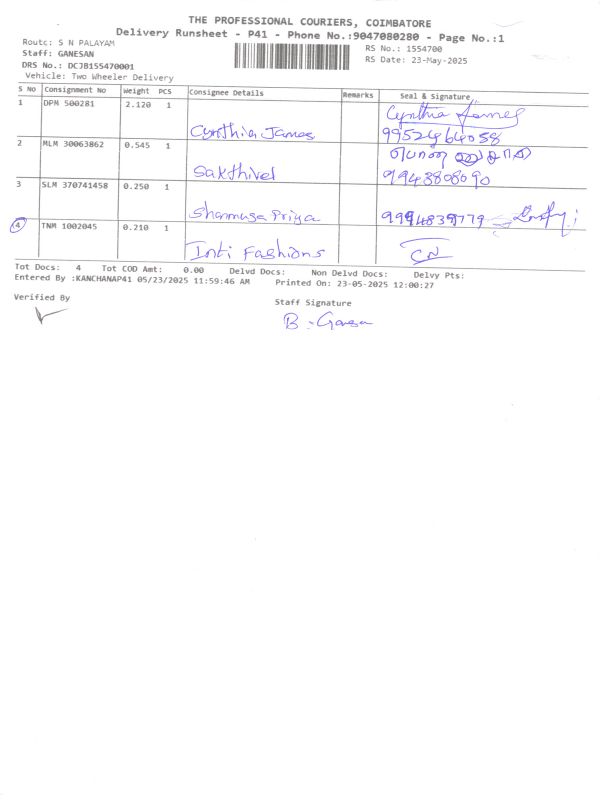 THE PROFESSIONAL COURIERS, COIMBATORE
Delivery Runsheet - P41 - Phone No.:9047080280 - Page No.:1
Route: S N PALAYAM
RS No.: 1554700
Staff: GANESAN
RS Date: 23-May-2025
DRS No.: DCJB155470001
Vehicle: Two Wheeler Delivery
S No Consignment No Weight PCS Consignee Details Remarks Seal & Signature
1 DPM 500281 2.120 1 Cynthia James
Cynthia James 9952464058
2 MLM 30063862 0.545 1
Sakthivel 9943808090
3 SLM 370741458 0.250 1
Shanmuga Priya 9994839779
4 TNM 1002045 0.210 1
Inti Fashions CN
Tot Docs: 4 Tot COD Amt: 0.00 Delvd Docs: Non Delvd Docs: Delvy Pts:
Entered By :KANCHANAP41 05/23/2025 11:59:46 AM Printed On: 23-05-2025 12:00:27
Verified By
Staff Signature
B. Ganesan